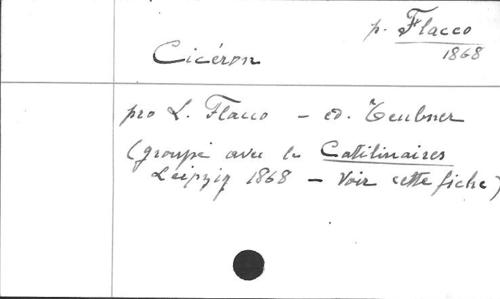 p. Flacco
1868
Cicéron
pro L. Flacco – ed. Teubner
(groupé avec les Catilinaires
Leipzig 1868 – Voir cette fiche)